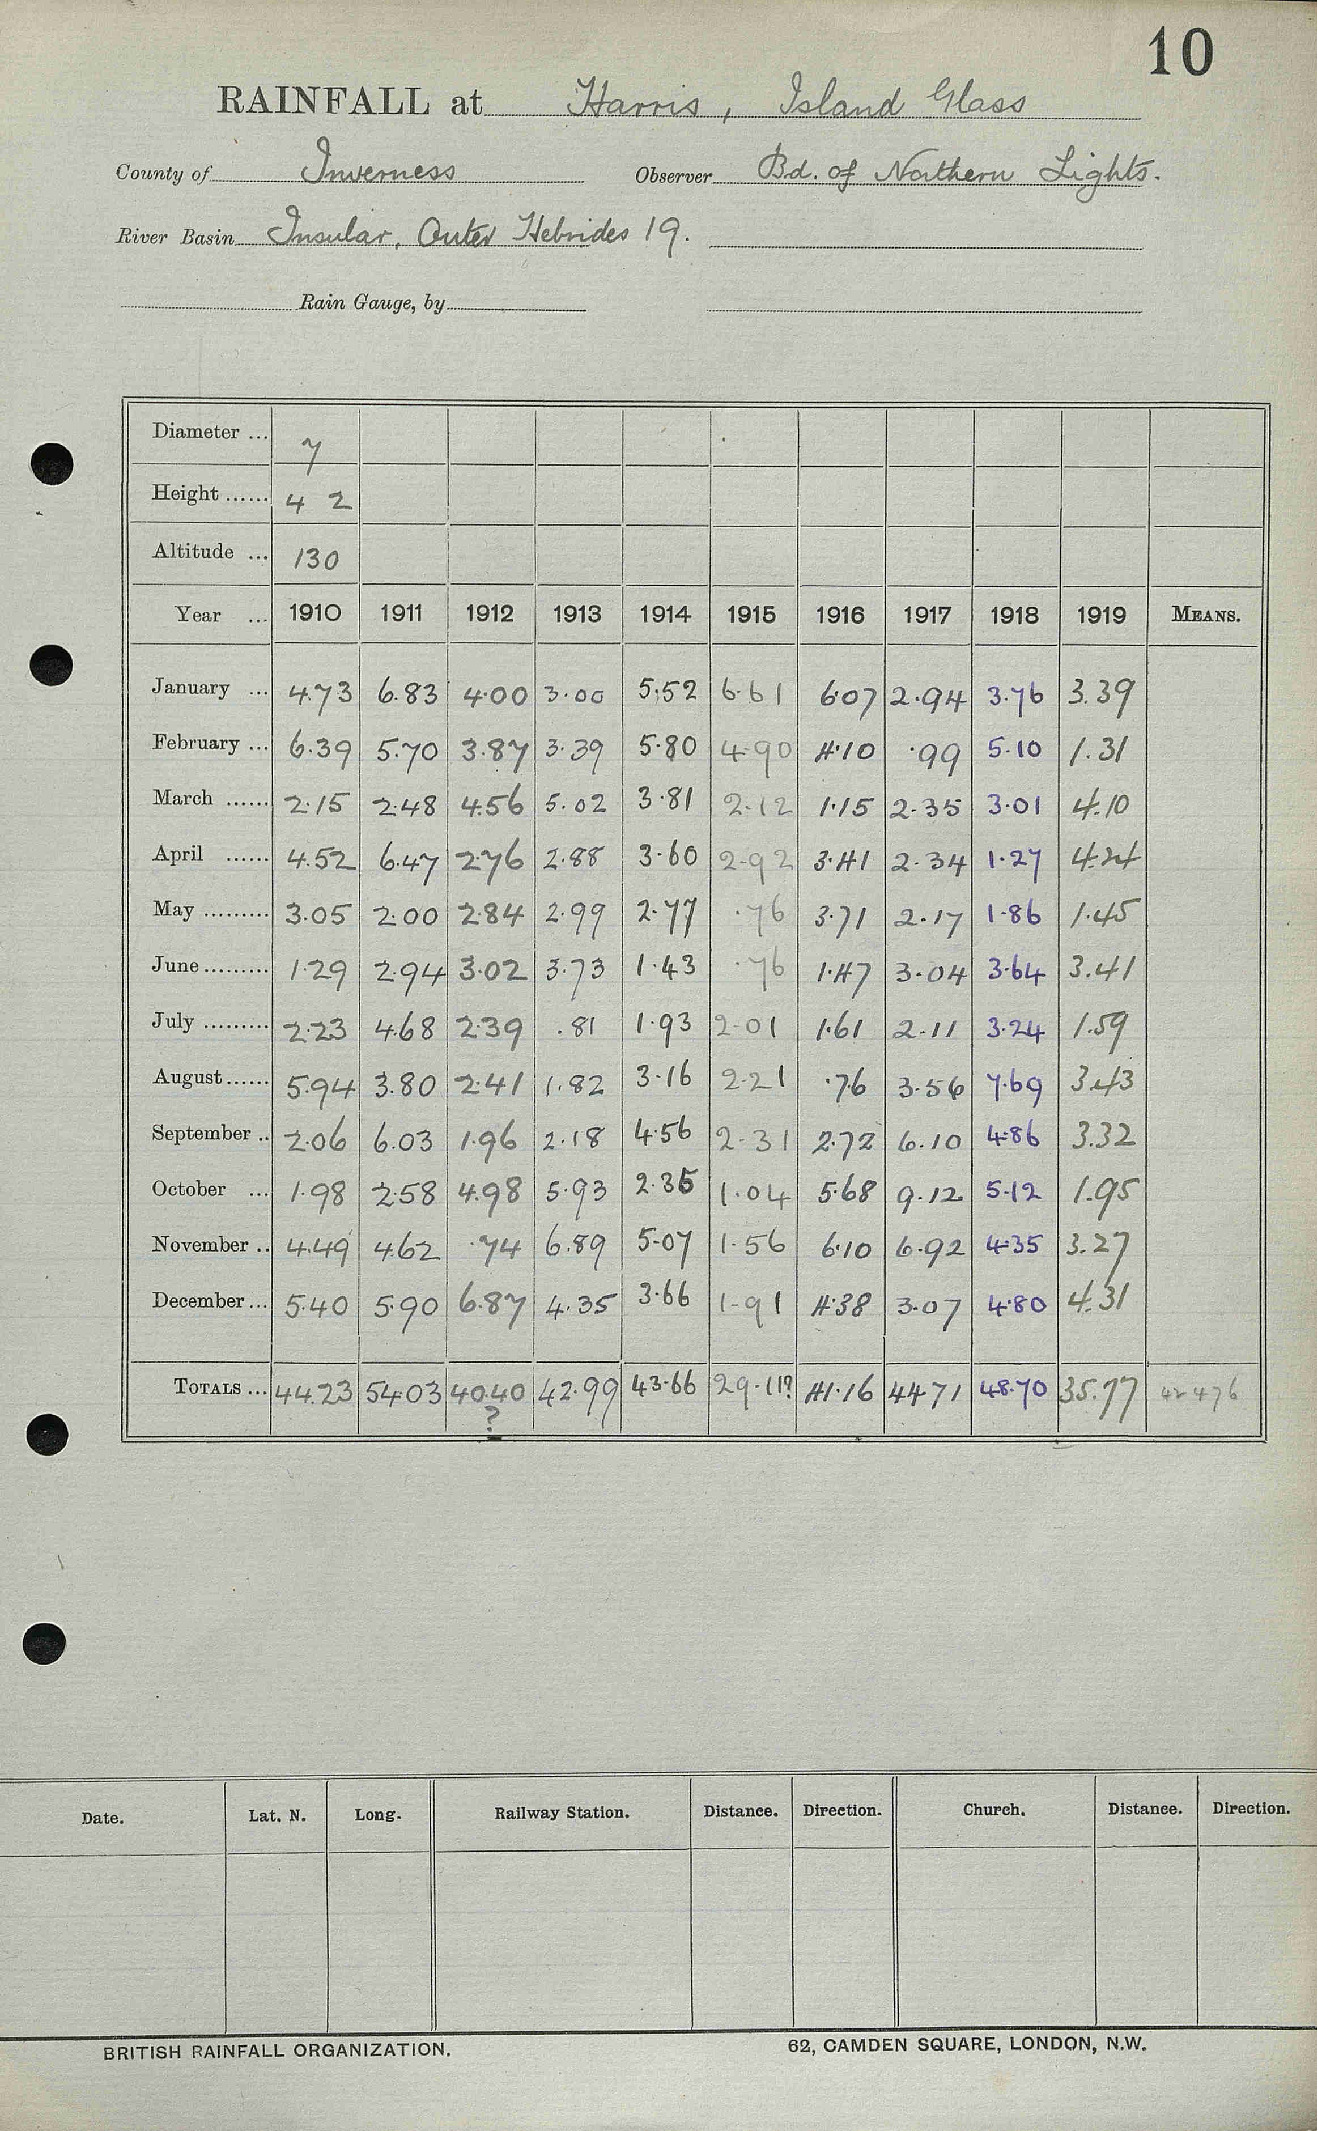 10
RAINFALL at Harris, Island Glass
County of Inverness Observer Bd. of Northern Lights.
River Basin Insular, Outer Hebrides 19.
Rain Gauge, by
Diameter ... 7
Height ...... 4 2
Altitude ... 130
Year ... 1910 1911 1912 1913 1914 1915 1916 1917 1918 1919 MEANS.
January ... 4.73 6.83 4.00 3.00 5.52 6.61 6.07 2.94 3.76 3.39
February ... 6.39 5.70 3.87 3.39 5.80 4.90 4.10 .99 5.10 1.31
March ...... 2.15 2.48 4.56 5.02 3.81 2.12 1.15 2.35 3.01 4.10
April ...... 4.52 6.47 2.76 2.88 3.60 2.92 3.41 2.34 1.27 4.24
May ......... 3.05 2.00 2.84 2.99 2.77 .76 3.71 2.17 1.86 1.45
June ......... 1.29 2.94 3.02 3.73 1.43 .76 1.47 3.04 3.64 3.41
July ......... 2.23 4.68 2.39 .81 1.93 2.01 1.61 2.11 3.24 1.59
August ...... 5.94 3.80 2.41 1.82 3.16 2.21 .76 3.56 7.69 3.43
September .. 2.06 6.03 1.96 2.18 4.56 2.31 2.72 6.10 4.86 3.32
October ... 1.98 2.58 4.98 5.93 2.35 1.04 5.68 9.12 5.12 1.95
November .. 4.49 4.62 .74 6.89 5.07 1.56 6.10 6.92 4.35 3.27
December ... 5.40 5.90 6.87 4.35 3.66 1.91 4.38 3.07 4.80 4.31
TOTALS ... 44.23 54.03 40.40 42.99 43.66 29.11? 41.16 44.71 48.70 35.77 42 476
?
Date. Lat. N. Long. Railway Station. Distance. Direction. Church. Distance. Direction.
BRITISH RAINFALL ORGANIZATION. 62, CAMDEN SQUARE, LONDON, N.W.